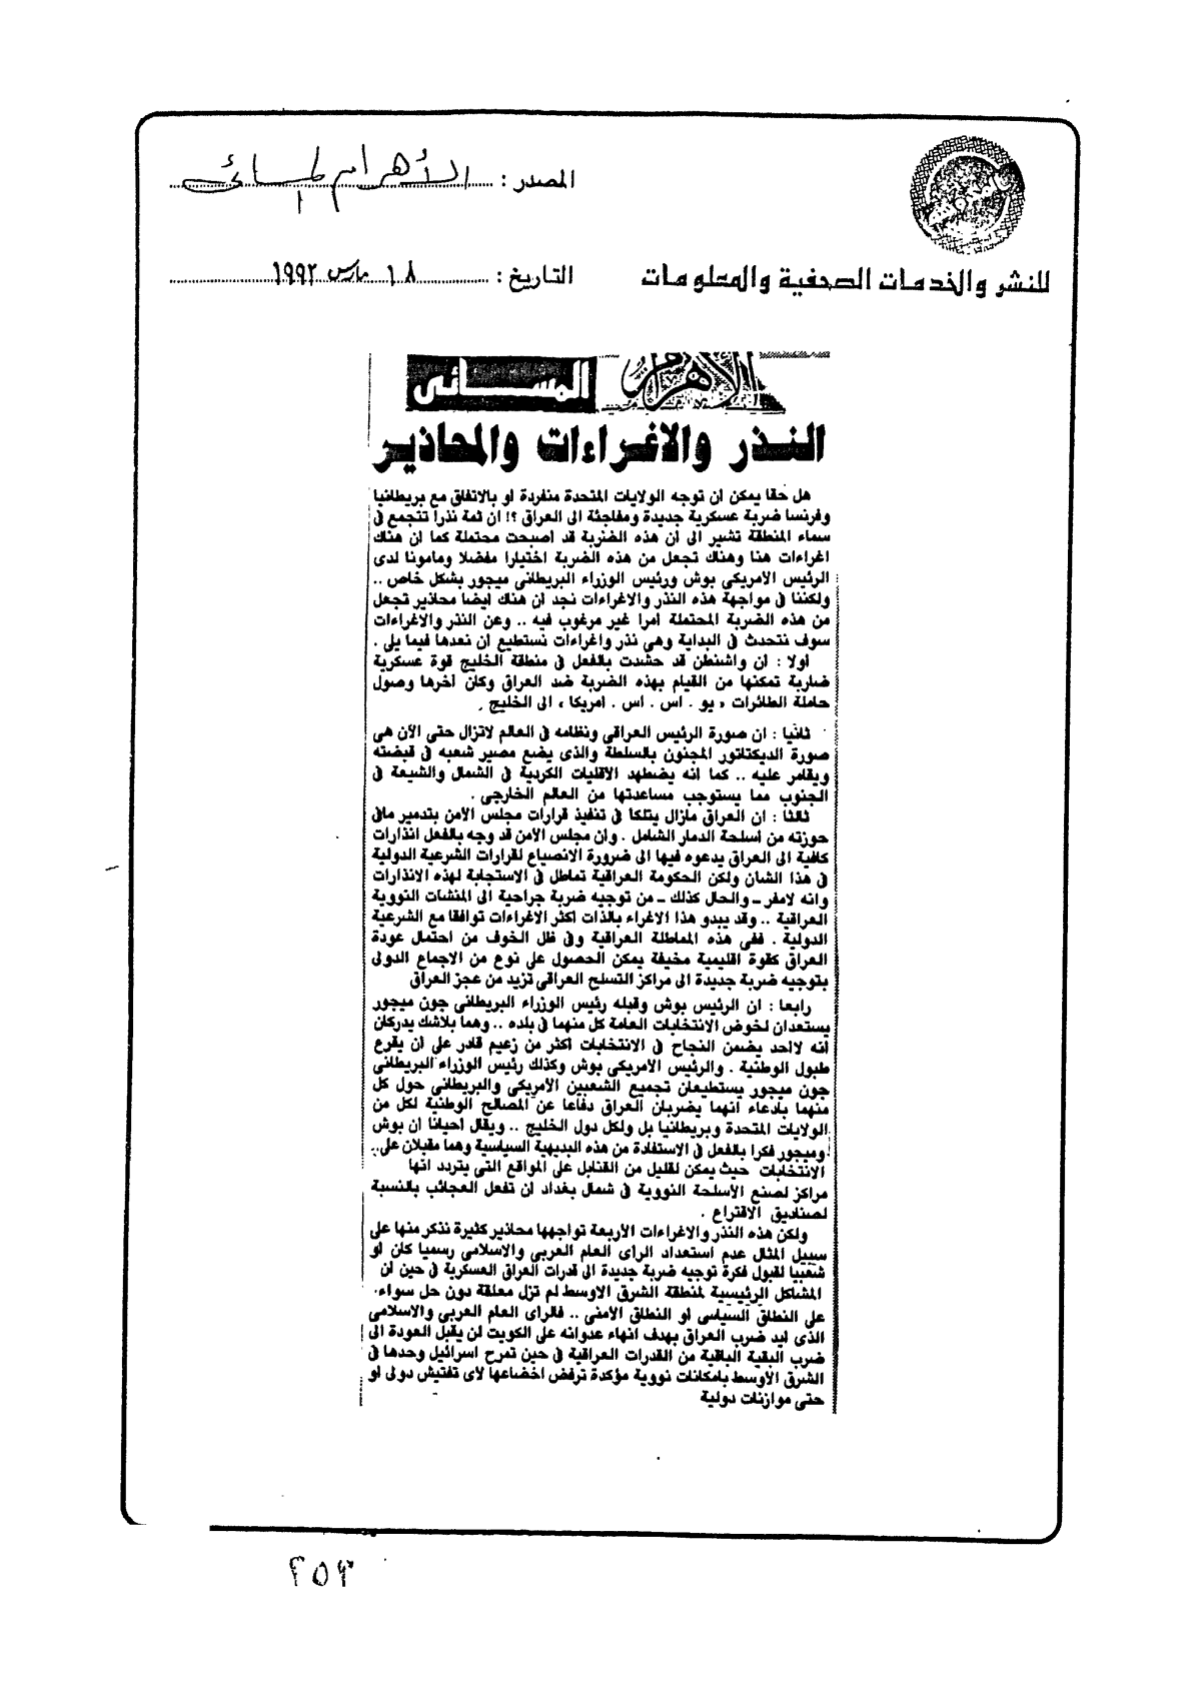 المصدر : الأهرام المسائى
للنشر والخدمات الصحفية والمعلومات
التاريخ : ١٨ مارس ١٩٩٢
الأهرام المسائى
النذر والاغراءات والمحاذير
هل حقا يمكن ان توجه الولايات المتحدة منفردة او بالاتفاق مع بريطانيا
وفرنسا ضربة عسكرية جديدة ومفاجئة الى العراق ؟! ان ثمة نذرا تتجمع فى
سماء المنطقة تشير الى ان هذه الضربة قد اصبحت محتملة كما ان هناك
اغراءات هنا وهناك تجعل من هذه الضربة اختيارا مفضلا ومامونا لدى
الرئيس الامريكى بوش ورئيس الوزراء البريطانى ميجور بشكل خاص ..
ولكننا فى مواجهة هذه النذر والاغراءات نجد ان هناك ايضا محاذير تجعل
من هذه الضربة المحتملة امرا غير مرغوب فيه .. وعن النذر والاغراءات
سوف نتحدث فى البداية وهى نذر واغراءات نستطيع ان نعدها فيما يلى .
اولا : ان واشنطن قد حشدت بالفعل فى منطقة الخليج قوة عسكرية
ضاربة تمكنها من القيام بهذه الضربة ضد العراق وكان اخرها وصول
حاملة الطائرات « يو . اس . اس . امريكا » الى الخليج .
ثانيا : ان صورة الرئيس العراقى ونظامه فى العالم لاتزال حتى الآن هى
صورة الديكتاتور المجنون بالسلطة والذى يضع مصير شعبه فى قبضته
ويقامر عليه .. كما انه يضطهد الاقليات الكردية فى الشمال والشيعة فى
الجنوب مما يستوجب مساعدتها من العالم الخارجى .
ثالثا : ان العراق مازال يتلكا فى تنفيذ قرارات مجلس الامن بتدمير مافى
حوزته من اسلحة الدمار الشامل . وان مجلس الامن قد وجه بالفعل انذارات
كافية الى العراق يدعوه فيها الى ضرورة الانصياع لقرارات الشرعية الدولية
فى هذا الشان ولكن الحكومة العراقية تماطل فى الاستجابة لهذه الانذارات
وانه لامفر - والحال كذلك - من توجيه ضربة جراحية الى المنشات النووية
العراقية .. وقد يبدو هذا الاغراء بالذات اكثر الاغراءات توافقا مع الشرعية
الدولية . ففى هذه المماطلة العراقية وفى ظل الخوف من احتمال عودة
العراق كقوة اقليمية مخيفة يمكن الحصول على نوع من الاجماع الدولى
بتوجيه ضربة جديدة الى مراكز التسلح العراقى تزيد من عجز العراق
رابعا : ان الرئيس بوش وقبله رئيس الوزراء البريطانى جون ميجور
يستعدان لخوض الانتخابات العامة كل منهما فى بلده .. وهما بلاشك يدركان
أنه لااحد يضمن النجاح فى الانتخابات اكثر من زعيم قادر على ان يقرع
طبول الوطنية . والرئيس الامريكى بوش وكذلك رئيس الوزراء البريطانى
جون ميجور يستطيعان تجميع الشعبين الامريكى والبريطانى حول كل
منهما بادعاء انهما يضربان العراق دفاعا عن المصالح الوطنية لكل من
الولايات المتحدة وبريطانيا بل ولكل دول الخليج .. ويقال احيانا ان بوش
وميجور فكرا بالفعل فى الاستفادة من هذه البديهية السياسية وهما مقبلان على..
الانتخابات حيث يمكن لقليل من القنابل على المواقع التى يتردد انها
مراكز لصنع الاسلحة النووية فى شمال بغداد ان تفعل العجائب بالنسبة
لصناديق الاقتراع .
ولكن هذه النذر والاغراءات الاربعة تواجهها محاذير كثيرة نذكر منها على
سبيل المثال عدم استعداد الراى العام العربى والاسلامى رسميا كان او
شعبيا لقبول فكرة توجيه ضربة جديدة الى قدرات العراق العسكرية فى حين ان
المشاكل الرئيسية لمنطقة الشرق الاوسط لم تزل معلقة دون حل سواء
على النطاق السياسى او النطاق الامنى .. فالراى العام العربى والاسلامى
الذى ايد ضرب العراق بهدف انهاء عدوانه على الكويت لن يقبل العودة الى
ضرب البقية الباقية من القدرات العراقية فى حين تمرح اسرائيل وحدها فى
الشرق الاوسط بامكانات نووية مؤكدة ترفض اخضاعها لاى تفتيش دولى او
حتى موازنات دولية
٢٥٣